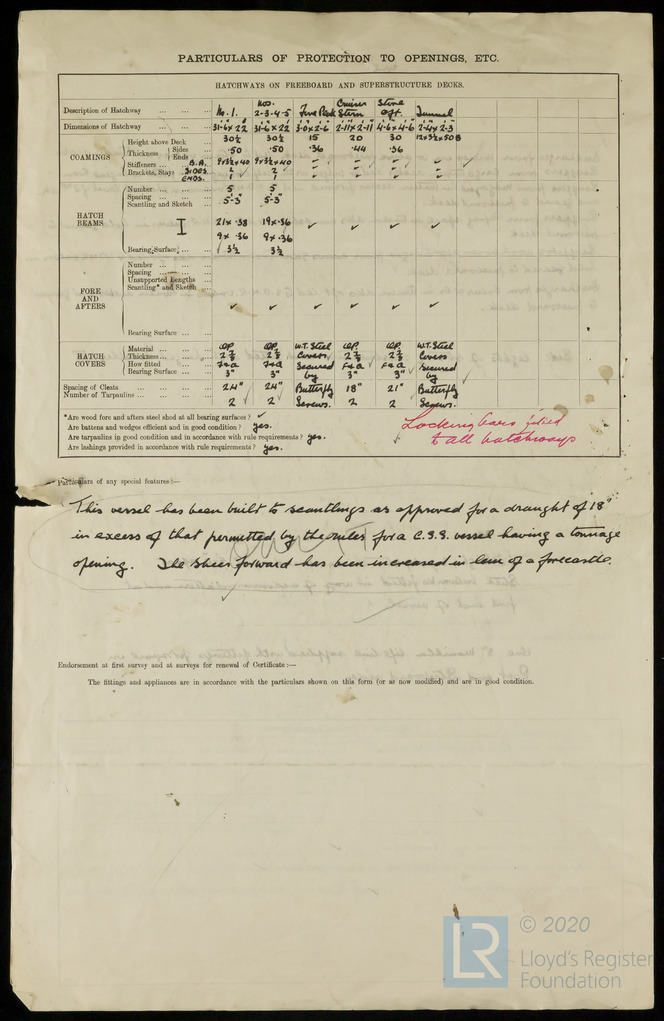 PARTICULARS OF PROTECTION TO OPENINGS, ETC.
HATCHWAYS ON FREEBOARD AND SUPERSTRUCTURE DECKS.
Description of Hatchway ... ... ... No. 1. Nos. 2-3-4-5 Fore Peak Cruiser Stern Store aft. Tunnel
Dimensions of Hatchway ... ... ... 31-6 x 22 31-6 x 22 3-0 x 2-6 2-11 x 2-11 4-6 x 4-6 2-4 x 2-3
COAMINGS
Height above Deck ... 30½ 30½ 15 20 30
Thickness Sides ... Ends ... .50 .50 .36 .44 .36
Stiffeners ... B.A. 9 x 3½ x 40 9 x 3½ x 40
Brackets, Stays SIDES. 2 2
ENDS. 1 1
HATCH BEAMS
Number ... ... ... 5 5
Spacing ... ... ... 5-3" 5-3"
Scantling and Sketch ...
21 x .38 19 x .36
9 x .36 9 x .36
Bearing Surface ... ... 3½ 3½
FORE AND AFTERS
Number ... ... ...
Spacing ... ... ...
Unsupported Lengths ...
Scantling* and Sketch ...
Bearing Surface ... ...
HATCH COVERS
Material ... ... ... O.P. O.P. W.T. Steel O.P. O.P. W.T. Steel
Thickness ... ... ... 2⅞ 2⅞ Covers 2⅞ 2⅞ Covers
How fitted ... ... F & A F & A Secured F & A F & A Secured
Bearing Surface ... ... 3" 3" by 3" 3" by
Spacing of Cleats ... ... ... 24" 24" Butterfly 18" 21" Butterfly
Number of Tarpaulins ... ... ... 2 2 Screws. 2 2 Screws.
*Are wood fore and afters steel shod at all bearing surfaces?
Are battens and wedges efficient and in good condition? yes.
Are tarpaulins in good condition and in accordance with rule requirements? yes.
Are lashings provided in accordance with rule requirements? yes.
Locking bars fitted
to all hatchways
Particulars of any special features:—
This vessel has been built to scantlings as approved for a draught of 18"
in excess of that permitted by the rules for a C.S.S. vessel having a tonnage
opening. The sheer forward has been increased in lieu of a forecastle.
Endorsement at first survey and at surveys for renewal of Certificate:—
The fittings and appliances are in accordance with the particulars shown on this form (or as now modified) and are in good condition.
LR © 2020
Lloyd's Register
Foundation